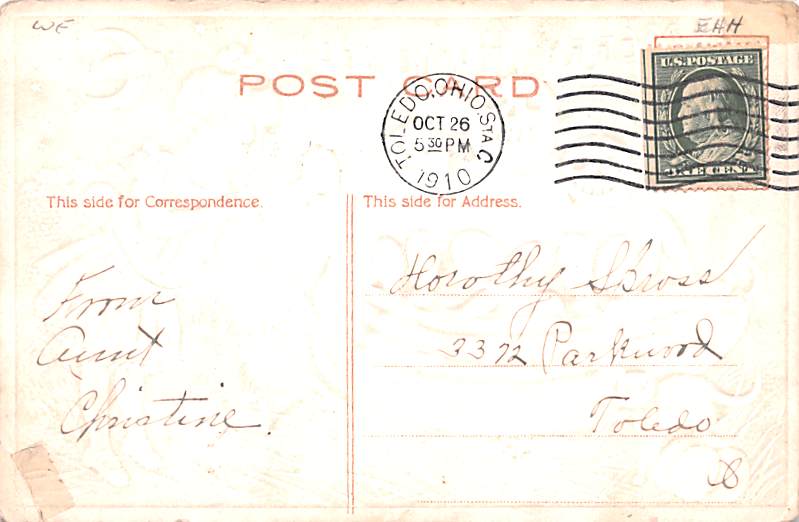 WE
EHH
POST CARD
TOLEDO, OHIO. STA. C
OCT 26
5 30 PM
1910
U.S. POSTAGE
ONE CENT
This side for Correspondence.
This side for Address.
From
Aunt
Christine.
Dorothy
2372 Parkwood
Toledo
O